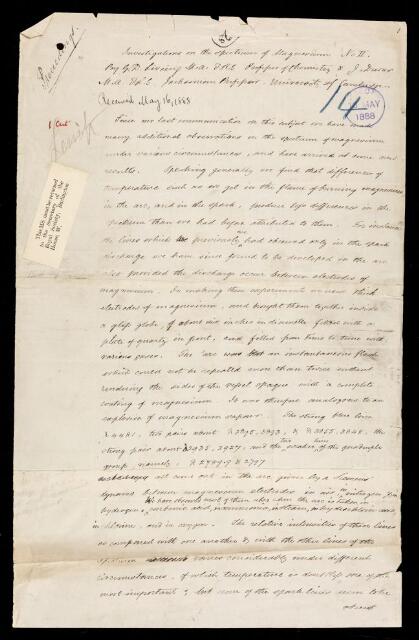 Proceedings.
(56)
Investigations on the spectrum of Magnesium No II.
By G D Liveing M.A. F.R.S. Professor of Chemistry & J. Dewar
M.A. F.R.S. Jacksonian Professor, University of Cambridge.
Received May 16, 1888
14
MAY
1888
1 Cut
This MS. must be returned
to the Secretary of the
Royal Society, Burlington
House, W.
Since our last communication on this subject we have made
many additional observations on the spectrum of magnesium
under various circumstances, and have arrived at some new
results. Speaking generally we find that differences of
temperature such as we get in the flame of burning magnesium
in the arc, and in the spark, produce less differences in the
spectrum than we had before attributed to them. For instance
the lines which we previously had observed only in the spark
discharge we have since found to be developed in the arc
also provided the discharge occur between electrodes of
magnesium. In making these experiments we used thick
electrodes of magnesium, and brought them together inside
a glass globe, of about six inches in diameter fitted with a
plate of quartz in front, and filled from time to time with
various gases. The arc was an instantaneous flash
which could not be repeated more than twice without
rendering the sides of the vessel opaque with a complete
coating of magnesium. It was therefore analogous to an
explosion of magnesium vapour. The strong blue line
λ 4481, two pairs about λ 3895, 3893, & λ 3855, 3848, the
strong pair about λ 2935, 2927, and the two weaker lines of the quadruple
group, namely, λ 2789.9 & 2797
all come out in the arc given by a Siemens
dynamo between magnesium electrodes in air, in nitrogen,
hydrogen, carbonic acid, ammonia,
in chlorine, and in oxygen. The relative intensities of these lines
as compared with one another & with the other lines of the
spectrum varies considerably under different
circumstances, of which temperature is doubtless one of the
most important; but some of the spark lines seem to be
absent